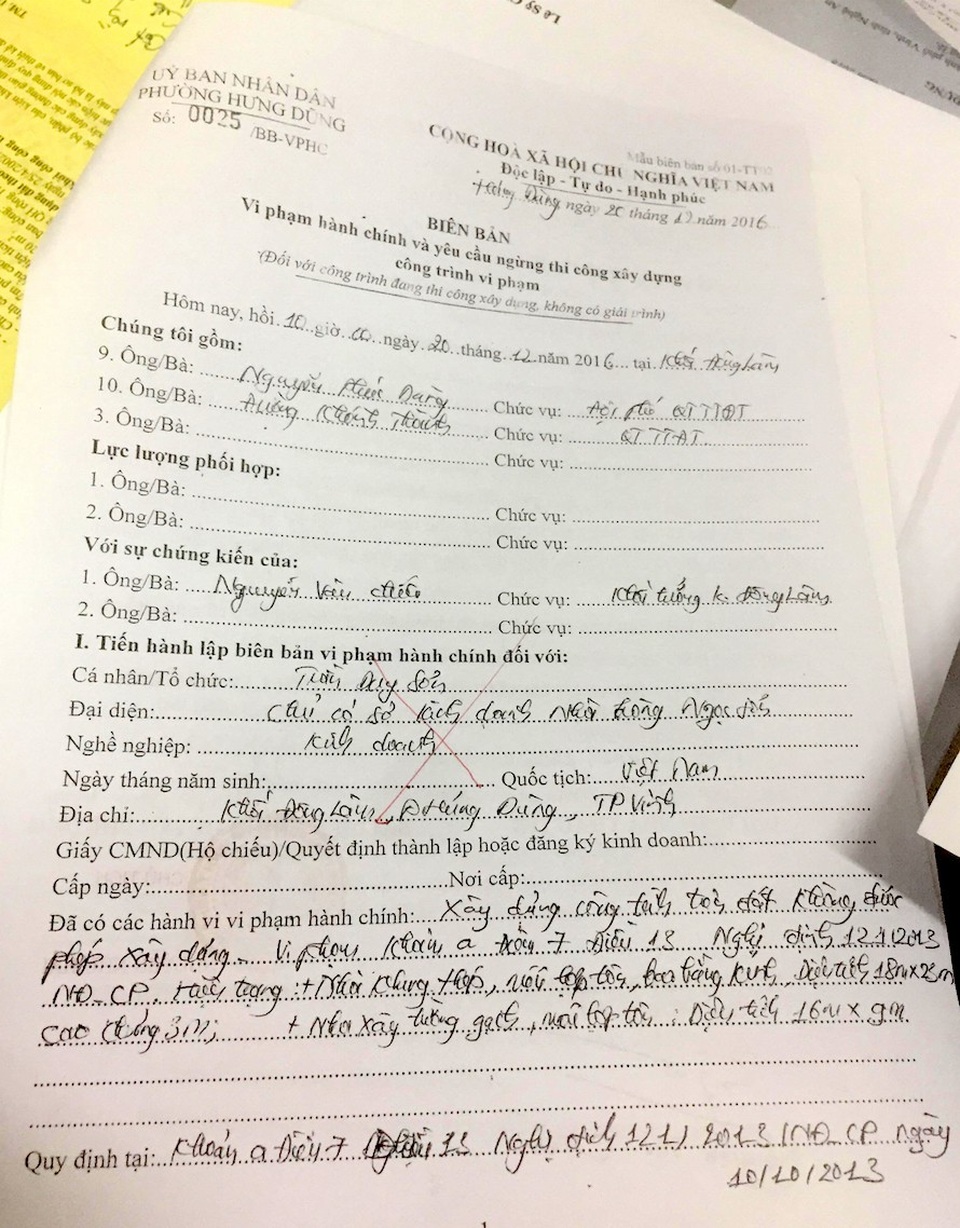 UỶ BAN NHÂN DÂN
PHƯỜNG HƯNG DŨNG
Số: 0025 /BB-VPHC
Mẫu biên bản số 01-TT02
CỘNG HOÀ XÃ HỘI CHỦ NGHĨA VIỆT NAM
Độc lập - Tự do - Hạnh phúc
Hưng Dũng ngày 20 tháng 12 năm 2016
BIÊN BẢN
Vi phạm hành chính và yêu cầu ngừng thi công xây dựng
công trình vi phạm
(Đối với công trình đang thi công xây dựng, không có giải trình)
Hôm nay, hồi 10 giờ 00 ngày 20 tháng 12 năm 2016 tại Khối Đông Lâm
Chúng tôi gồm:
9. Ông/Bà: Nguyễn Chức vụ: Đội phó QTTTĐT
10. Ông/Bà: Khánh Thành Chức vụ: QTTTĐT
3. Ông/Bà: Chức vụ:
Lực lượng phối hợp:
1. Ông/Bà: Chức vụ:
2. Ông/Bà: Chức vụ:
Với sự chứng kiến của:
1. Ông/Bà: Nguyễn Văn Chức vụ: Khối trưởng K. Đông Lâm
2. Ông/Bà: Chức vụ:
I. Tiến hành lập biên bản vi phạm hành chính đối với:
Cá nhân/Tổ chức: Trần Duy Sơn
Đại diện: Chủ cơ sở kinh doanh Nhà hàng Ngọc
Nghề nghiệp: Kinh doanh
Ngày tháng năm sinh: Quốc tịch: Việt Nam
Địa chỉ: Khối Đông Lâm, P Hưng Dũng, TP Vinh
Giấy CMND(Hộ chiếu)/Quyết định thành lập hoặc đăng ký kinh doanh:
Cấp ngày: Nơi cấp:
Đã có các hành vi vi phạm hành chính: Xây dựng công trình trên đất không được
phép xây dựng. Vi phạm khoản a 7 Điều 13 Nghị định 121/2013
NĐ-CP. Hiện trạng: + Nhà khung thép, mái lợp tôn, bao bằng kính, Diện tích 18m x 25m
cao khoảng 3m; + Nhà xây tường gạch, mái lợp tôn; Diện tích 16m x 9m
Quy định tại: Khoản a Điều 7 13 Nghị định 121/2013/NĐ-CP ngày
10/10/2013
1